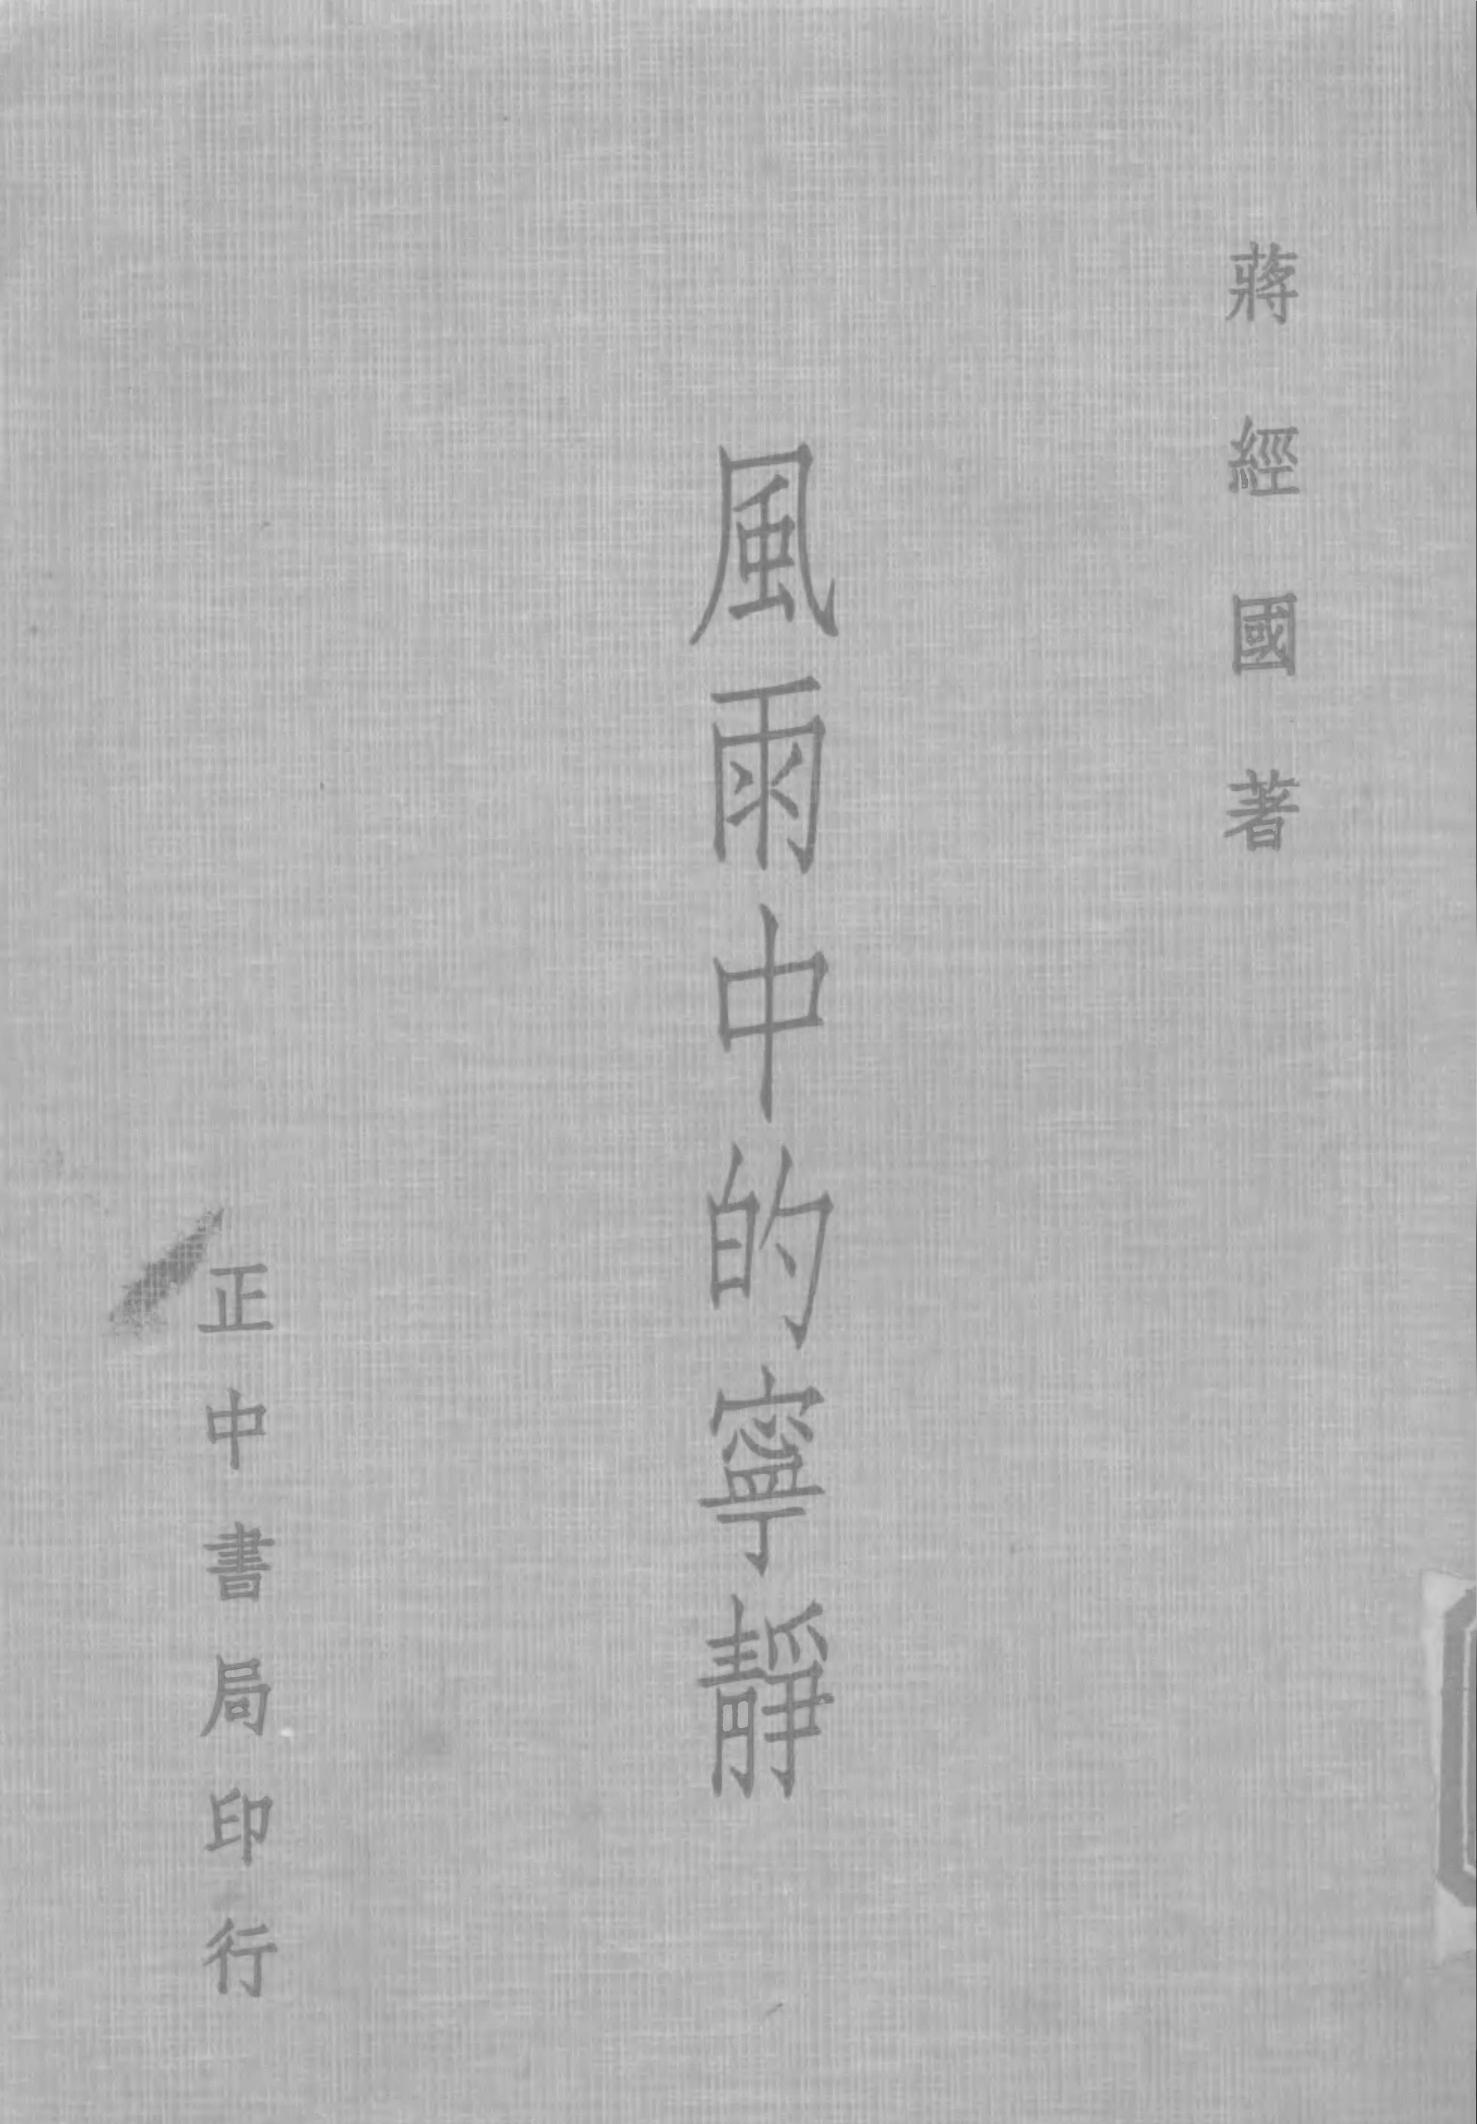 蔣經國著
風雨中的寧靜
正中書局印行